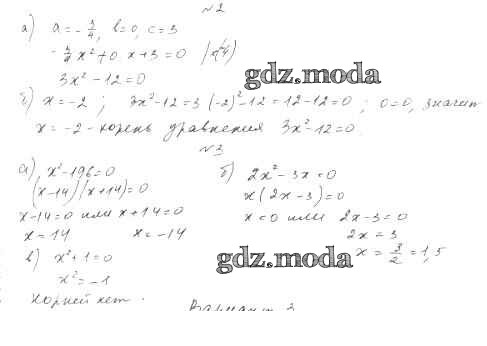 №2
а) a = -3/4, b=0, c=3
-3/4 x² + 0·x + 3 = 0
3x² - 12 = 0
gdz.moda
б) x = -2 ; 3x² - 12 = 3(-2)² - 12 = 12 - 12 = 0 ; 0=0, значит
x = -2 - корень уравнения 3x² - 12 = 0.
№3
а) x² - 196 = 0
(x-14)(x+14) = 0
x - 14 = 0 или x + 14 = 0
x = 14 x = -14
б) 2x² - 3x = 0
x(2x - 3) = 0
x = 0 или 2x - 3 = 0
2x = 3
x = 3/2 = 1,5
gdz.moda
в) x² + 1 = 0
x² = -1
корней нет.
Вариант 2